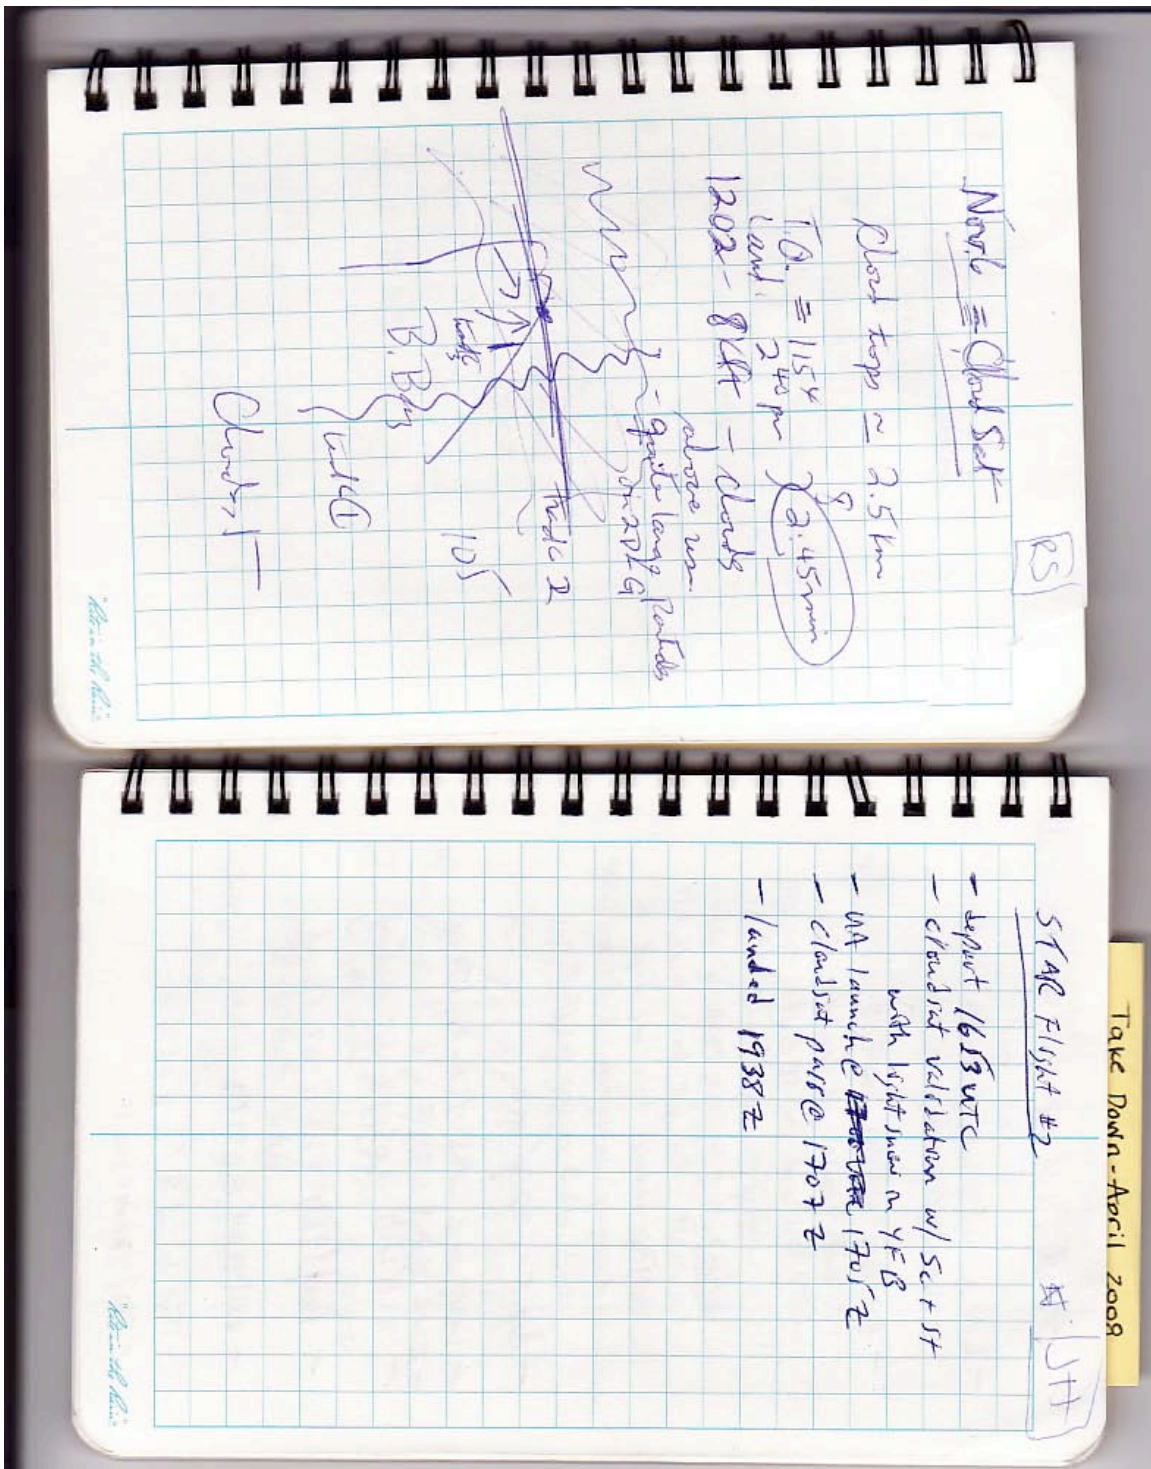 RS
Nov. 6 = Cloud Sat
Cloud tops ≈ 2.5 km
T.O. = 1154
Land. 240 pm 2.45 min
1202 - 8 kft - clouds
above us
- quite large Particles
in 2D G
track 2
105
track 3
B. Bay
track ①
Cloudsat
"Rite in the Rain"
Take Down - April 2008
JH
STAR Flight #2
- depart 1653 UTC
- cloudsat validation w/ Sc + St
with light snow in YFB
- UA launch @ 1705 Z
- cloudsat pass @ 1707 Z
- landed 1938 Z
"Rite in the Rain"